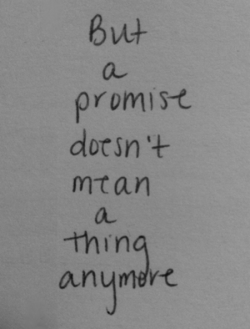 But
a
promise
doesn't
mean
a
thing
anymore